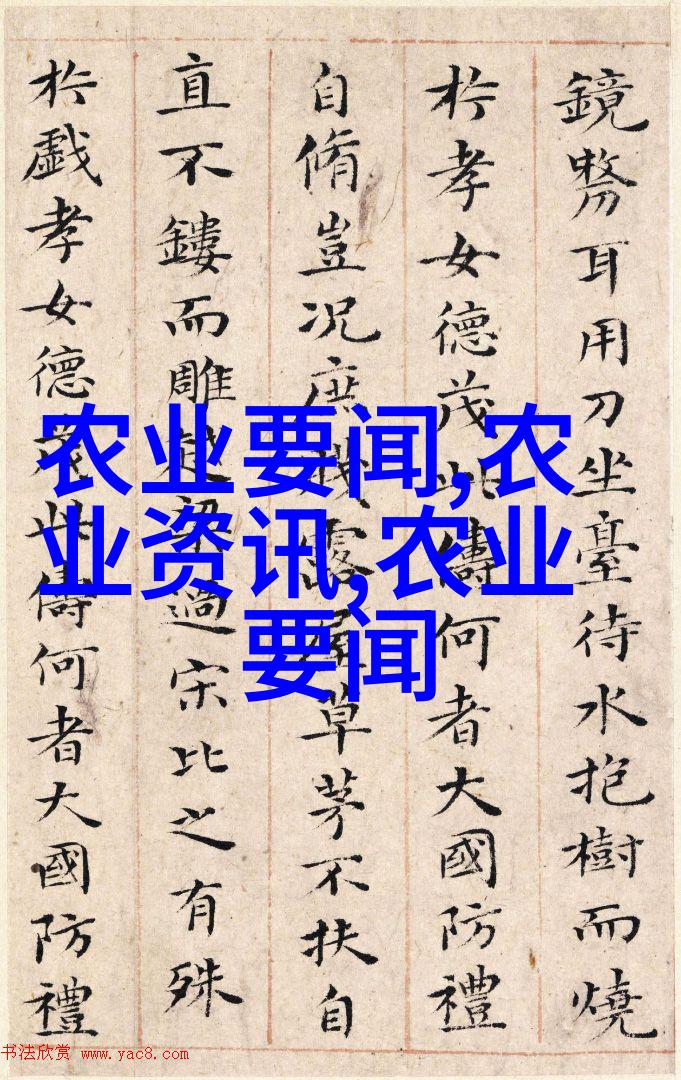 鏡剺耳用刀坐臺待水抱樹而燒
於孝女德茂此儔何者大國防禮
自脩豈况庶賤露屋草茅不扶自
直不鏤而雕越梁過宋比之有殊
於戲孝女德茂此儔何者大國防禮
农业要闻,农
业资讯,农业
要闻
书法欣赏 www.yac8.com